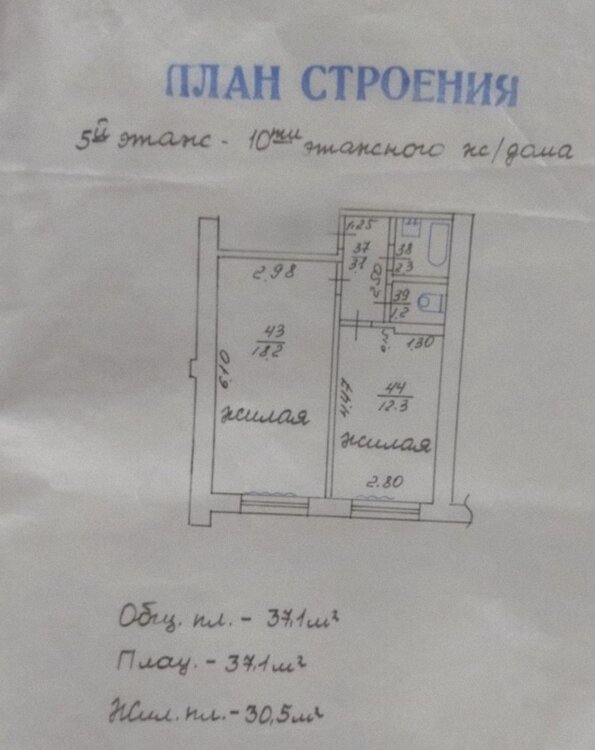 ПЛАН СТРОЕНИЯ
5й этаж - 10ти этажного ж/дома
1.25
37
3.1
38
2.3
2.50
39
1.2
2.98
43
18.2
6.10
жилая
1.30
44
12.3
4.47
жилая
2.80
Общ. пл. - 37,1 м²
Площ. - 37,1 м²
Жил. пл. - 30,5 м²